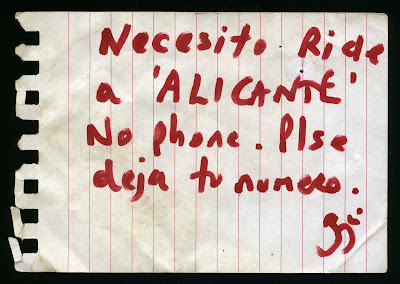 Necesito Ride
a 'ALICANTE'
No phone. Plse
deja tu numero.